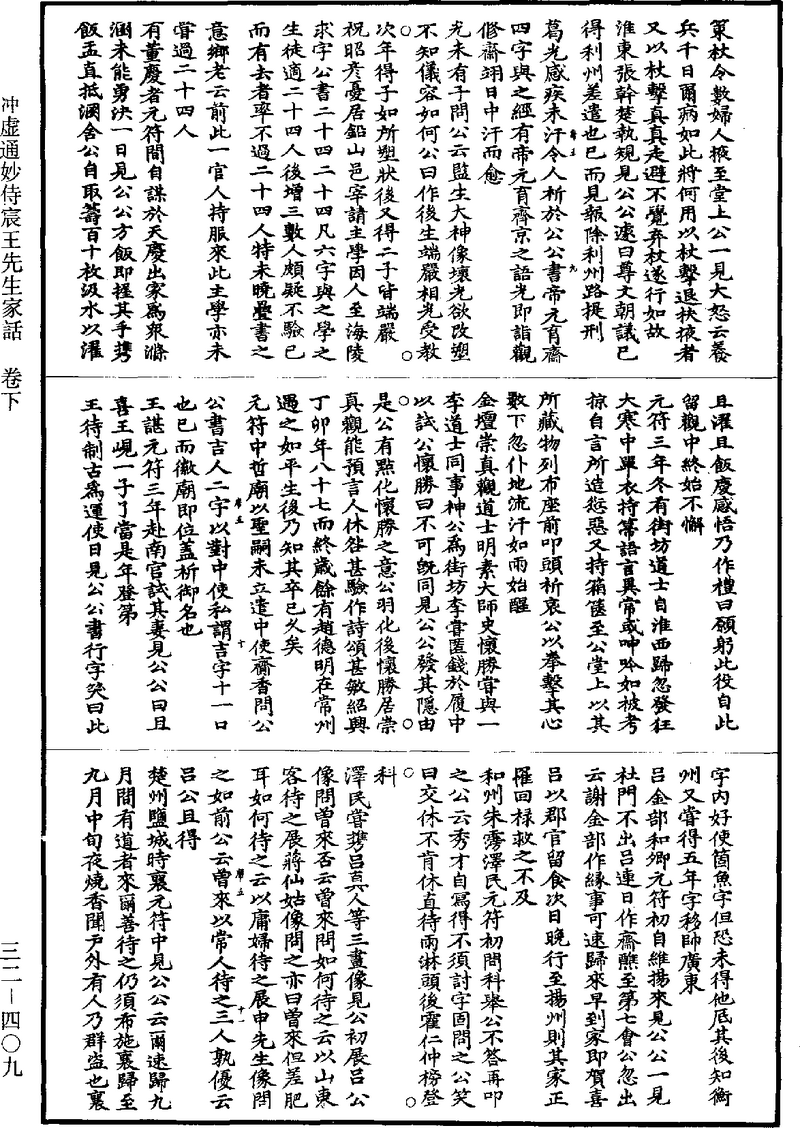 冲虛通妙侍宸王先生家話　卷下
三二—四〇九
策杖令數婦人掖至堂上公一見大怒云養
兵千日爾病如此將何用以杖擊退扶掖者
又以杖擊真真走避不覺弃杖遂行如故
淮東張幹楚執規見公公遽曰尊文朝議已
得利州差遣也已而見報除利州路提刑
葛光感疾未汗令人祈於公公書帝元育齋
四字與之經有帝元育齊京之語光即詣觀
修齋翊日中汗而愈
光未有子問公云監生大神像壞光欲改塑
不知儀容如何公曰作後生端嚴相光受教
次年得子如所塑狀後又得二子皆端嚴
祝昭彥憂居鉛山邑宰請主學因人至海陵
求字公書二十四二十四凡六字與之學之
生徒適二十四人後增三數人頗疑不驗已
而有去者率不過二十四人特未曉疊書之
意鄉老云前此一官人持服來此主學亦未
嘗過二十四人
有董慶者元符間自謀於天慶出家爲眾滌
溷未能勇決一日見公公方飯即握其手攜
飯盂直抵溷舍公自取籌百十枚汲水以濯
且濯且飯慶感悟乃作禮曰願躬此役自此
留觀中終始不懈
元符三年冬有街坊道士自淮西歸忽發狂
大寒中單衣持箒語言異常或呻吟如被考
掠自言所造愆惡又持箱篋至公堂上以其
所藏物列布座前叩頭祈哀公以拳擊其心
數下忽仆地流汗如雨始醒
金壇崇真觀道士明素大師史懷勝嘗與一
李道士同事神公爲街坊李嘗匿錢於履中
以試公懷勝曰不可旣同見公公發其隱由
是公有點化懷勝之意公羽化後懷勝居崇
真觀能預言人休咎甚驗作詩頌甚敏紹興
丁卯年八十七而終歲餘有趙德明在常州
遇之如平生後乃知其卒已久矣
元符中哲廟以聖嗣未立遣中使齋香問公
公書吉人二字以對中使私謂吉字十一口
也已而徽廟即位蓋祈御名也
王諶元符三年赴南官試其妻見公公曰且
喜王峴一子了當是年登第
王待制古爲運使日見公公書行字笑曰此
字內好使箇魚字但恐未得他底其後知衡
州又嘗得五年字移帥廣東
呂金部和卿元符初自維揚來見公公一見
社門不出呂連日作齋醮至第七會公忽出
云謝金部作緣事可速歸來早到家即賀喜
呂以郡官留食次日晚行至揚州則其家正
罹回祿救之不及
和州朱雱澤民元符初問科舉公不答再叩
之公云秀才自寫得不須討字固問之公笑
曰交休不肯休直待雨淋頭後霍仁仲榜登
科
澤民嘗攜呂真人等三畫像見公初展呂公
像問曾來否云曾來問如何待之云以山東
客待之展蔣仙姑像問之亦曰曾來但差肥
耳如何待之云以庸婦待之展申先生像問
之如前公云曾來以常人待之三人孰優云
呂公且得
楚州鹽城時襄元符中見公公云爾速歸九
月間有道者來爾善待之仍須布施襄歸至
九月中旬夜燒香聞戶外有人乃群盜也襄